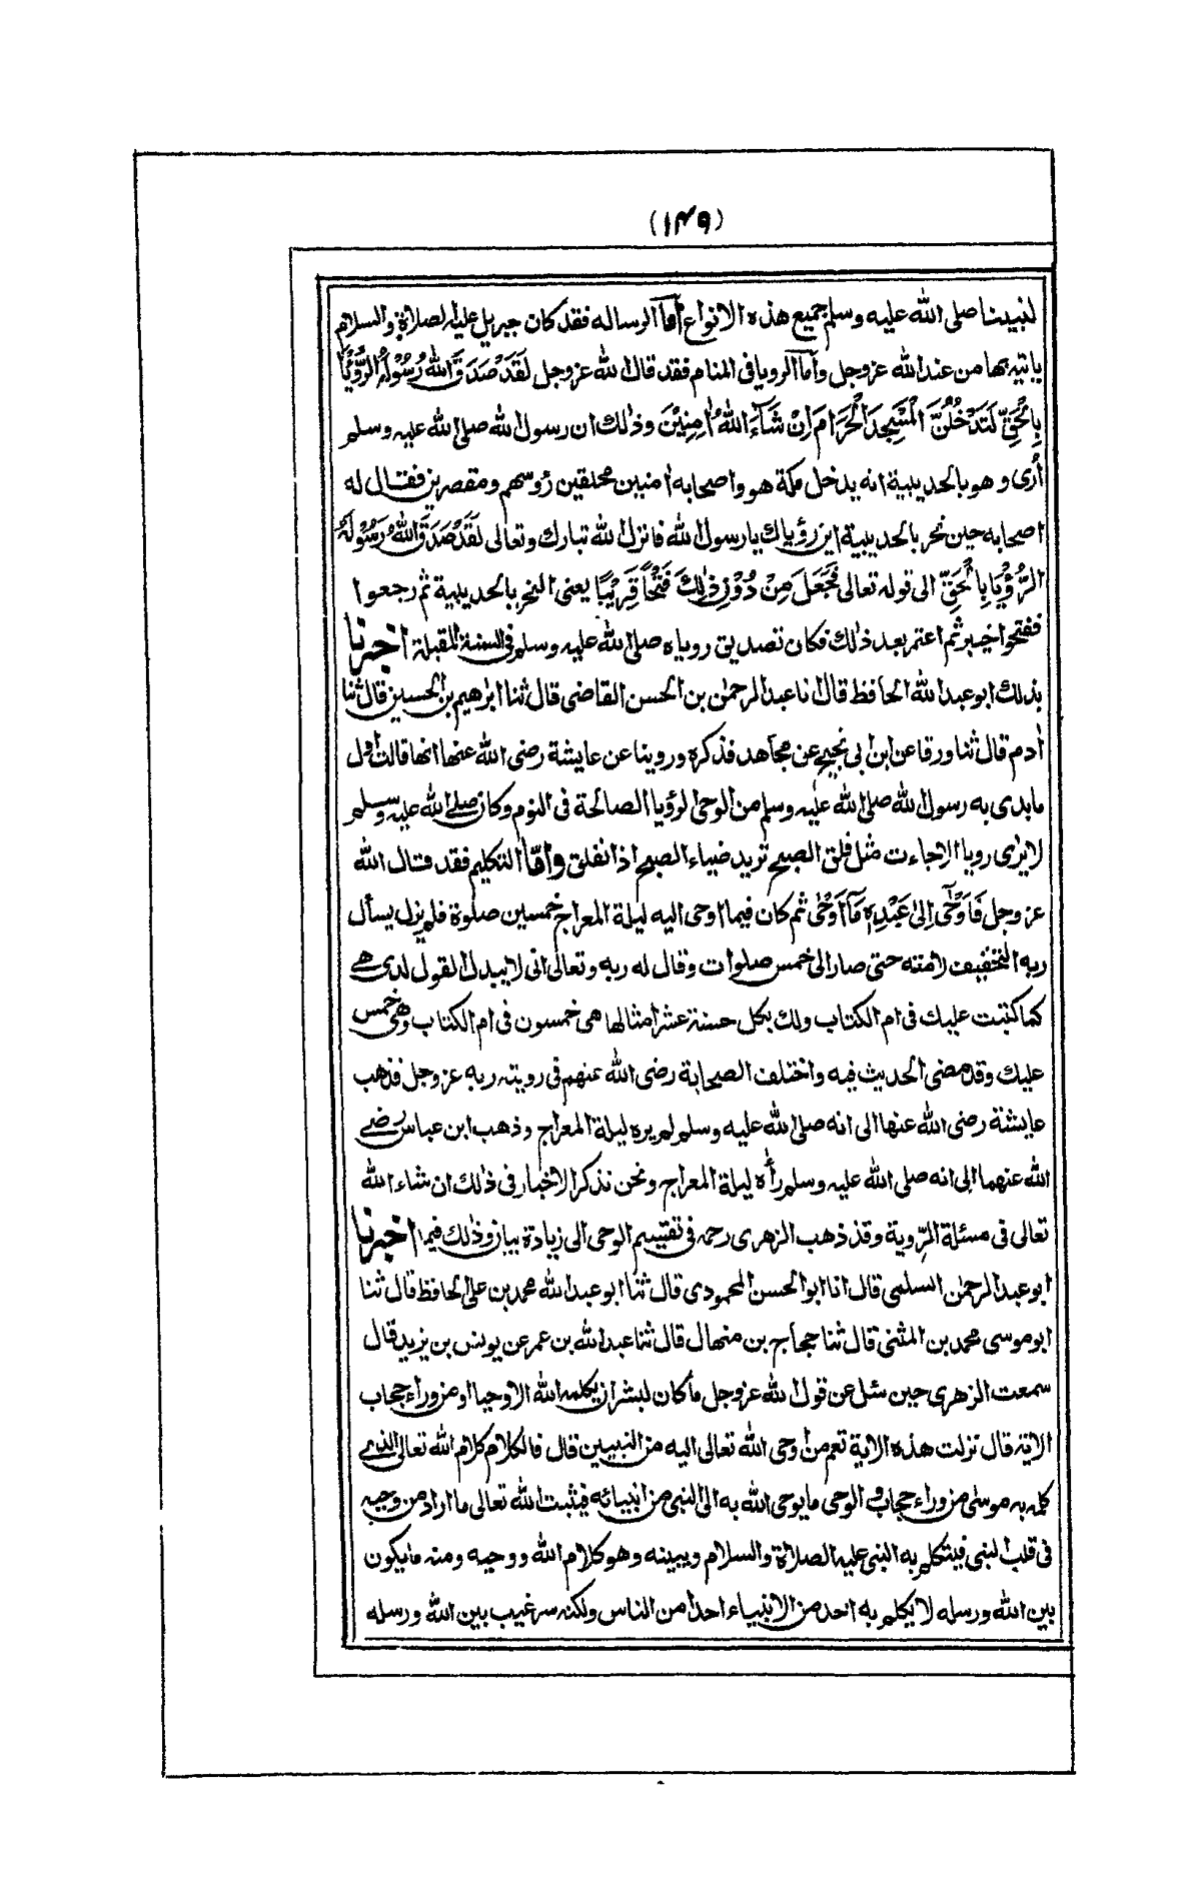 (۱۴۹)
لنبينا صلى الله عليه وسلم جميع هذه الانواع أما الرساله فقد كان جبريل عليه الصلاة والسلام
ياتيه بها من عند الله عز وجل وأما الرويا فى المنام فقد قال الله عز وجل لَقَدْ صَدَقَ اللهُ رَسُوْلَهُ الرُّؤْيَا
بِالْحَقِّ لَتَدْخُلُنَّ الْمَسْجِدَ الْحَرَامَ اِنْ شَآءَ اللهُ اٰمِنِيْنَ وذلك ان رسول الله صلى الله عليه وسلم
أرى وهو بالحديبية انه يدخل مكة هو واصحابه اٰمنين محلقين رؤسهم ومقصرين فقال له
اصحابه حين نحر بالحديبية اين رؤياك يا رسول الله فانزل الله تبارك وتعالى لَقَدْ صَدَقَ اللهُ رَسُوْلَهُ
الرُّؤْيَا بِالْحَقِّ الى قوله تعالى فَجَعَلَ مِنْ دُوْنِ ذٰلِكَ فَتْحًا قَرِيْبًا يعنى النحر بالحديبية ثم رجعوا
ففتحوا خيبر ثم اعتمر بعد ذلك فكان تصديق روياه صلى الله عليه وسلم فى السنة المقبلة اخبرنا
بذلك ابو عبد الله الحافظ قال انا عبد الرحمٰن بن الحسن القاضى قال ثنا ابرهيم بن الحسين قال ثنا
اٰدم قال ثنا ورقا عن ابن ابى نجيح عن مجاهد فذكره وروينا عن عايشة رضى الله عنها انها قالت اول
ما بدى به رسول الله صلى الله عليه وسلم من الوحى الرؤيا الصالحة فى النوم وكان صلى الله عليه وسلم
لا يرى رويا الا جاءت مثل فلق الصبح تريد ضياء الصبح اذا انفلق وامّا التكليم فقد قال الله
عز وجل فَاَوْحٰٓى اِلىٰ عَبْدِهٖ مَآ اَوْحٰى ثم كان فيما اوحى اليه ليلة المعراج خمسين صلوة فلم يزل يسأل
ربه التخفيف لامته حتى صار الى خمس صلوات وقال له ربه وتعالى انى لا يبدل القول لدى هى
كما كتبت عليك فى ام الكتاب ولك بكل حسنة عشر امثالها هى خمسون فى ام الكتاب وهى خمس
عليك وقد مضى الحديث فيه واختلف الصحابة رضى الله عنهم فى رويته ربه عز وجل فذهب
عايشة رضى الله عنها الى انه صلى الله عليه وسلم لم يره ليلة المعراج وذهب ابن عباس رضى
الله عنهما الى انه صلى الله عليه وسلم رأه ليلة المعراج ونحن نذكر الاخبار فى ذلك ان شاء الله
تعالى فى مسئلة الرّوية وقد ذهب الزهرى رحمه فى تقسيم الوحى الى زيادة بيان وذلك فيما اخبرنا
ابو عبد الرحمٰن السلمى قال انا ابو الحسن المحمودى قال ثنا ابو عبد الله محمد بن على الحافظ قال ثنا
ابو موسى محمد بن المثنى قال ثنا حجاج بن منهال قال ثنا عبد الله بن عمر عن يونس بن يزيد قال
سمعت الزهرى حين سئل عن قول الله عز وجل ما كان لبشر ان يكلمه الله الا وحيا او من وراء حجاب
الاية قال نزلت هذه الاية تعم من اوحى الله تعالى اليه من النبيين قال فالكلام كلام الله تعالى الذى
كلم به موسى من وراء حجاب والوحى ما يوحى الله به الى النبى من انبيائه فيثبت الله تعالى ما اراد من وحيه
فى قلب النبى فيتكلم به النبى عليه الصلاة والسلام ويبينه وهو كلام الله ووحيه ومنه ما يكون
بين الله ورسله لا يكلم به احد من الانبياء احدا من الناس ولكنه سر غيب بين الله ورسله